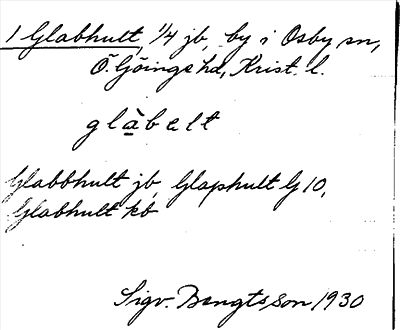 1 Glabhult, 1/4 jb, by i Osby sn,
Ö. Göinge hd, Krist. l.
glàbelt
Glabbhult jb, Glaphult G 10,
Glabhult kb
Sigv. Bengtsson 1930